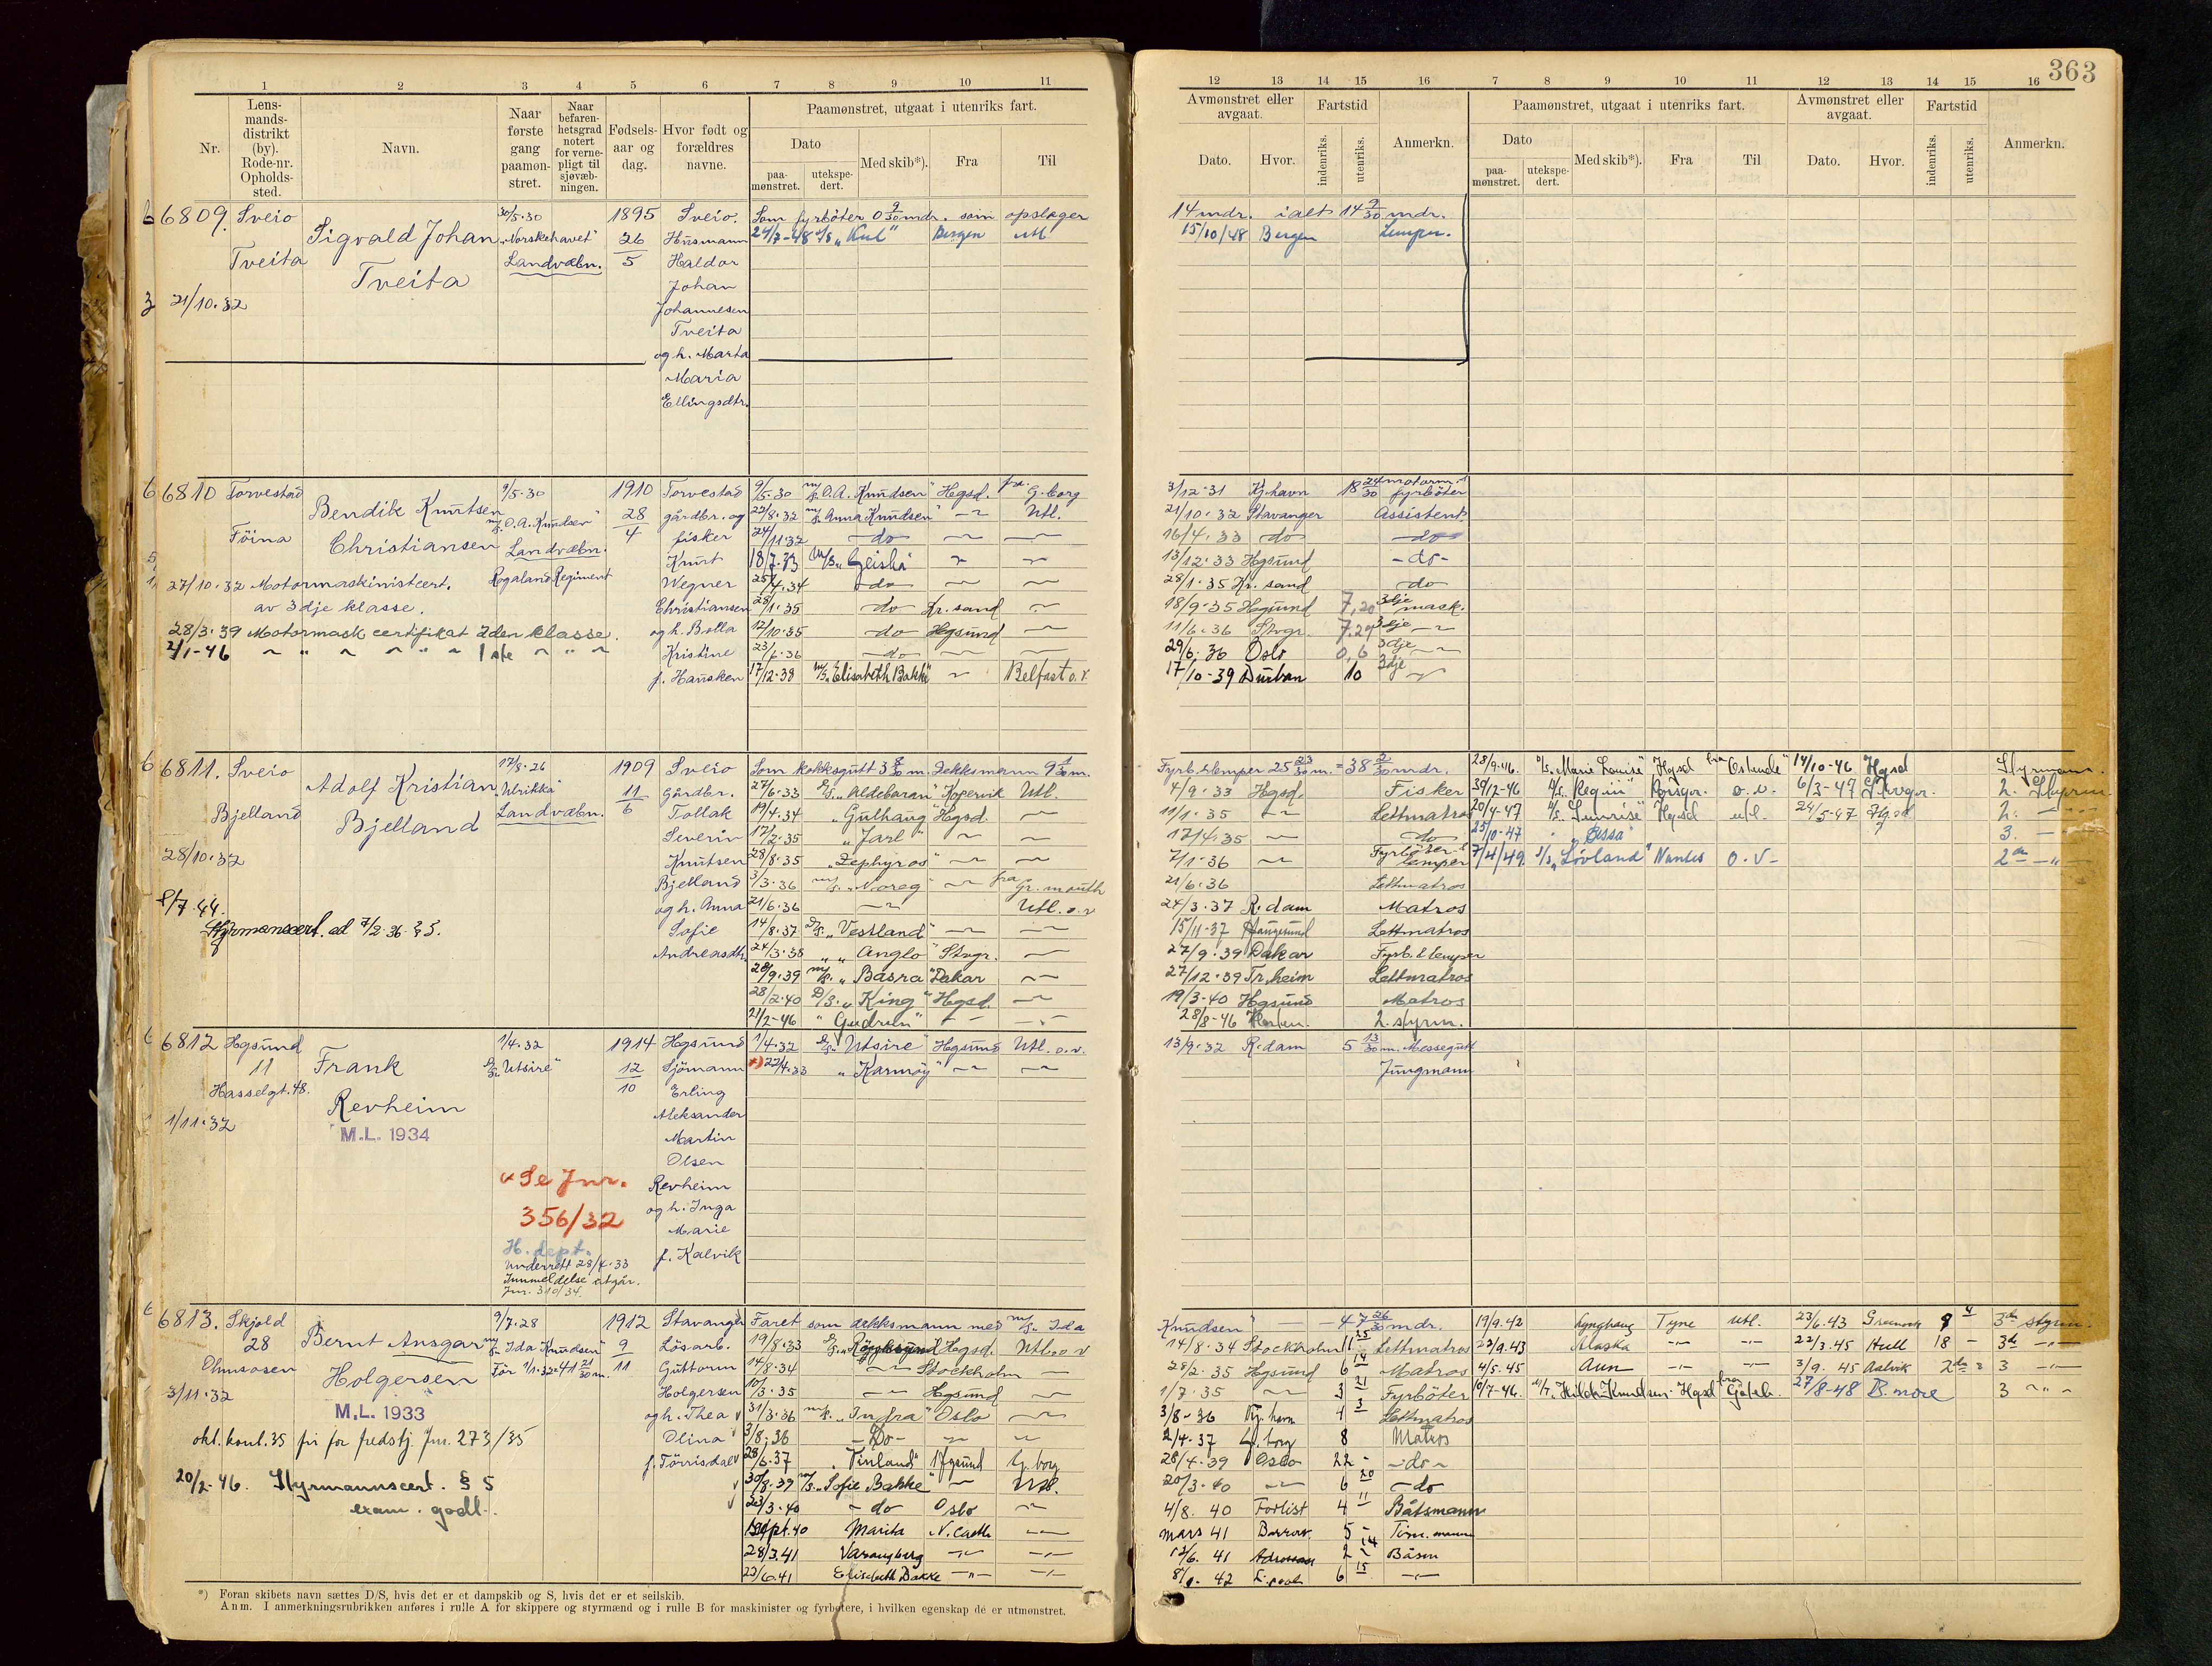 363
1 2 3 4 5 6 7 8 9 10 11
Nr.
Lens-mands-distrikt (by). Rode-nr. Opholds-sted.
Navn.
Naar første gang paamøn-stret.
Naar befaren-hetsgrad notert for verne-pligt til sjøvæb-ningen.
Fødsels-aar og dag.
Hvor født og forældres navne.
Paamønstret, utgaat i utenriks fart.
Dato
paa-mønstret.
utekspe-dert.
Med skib*).
Fra
Til
12 13 14 15 16 7 8 9 10 11 12 13 14 15 16
Avmønstret eller avgaat.
Dato.
Hvor.
Fartstid
indenriks.
utenriks.
Anmerkn.
Paamønstret, utgaat i utenriks fart.
Dato
paa-mønstret.
utekspe-dert.
Med skib*).
Fra
Til
Avmønstret eller avgaat.
Dato.
Hvor.
Fartstid
indenriks.
utenriks.
Anmerkn.
6809. Sveio
Tveita
21/10.32
Sigvald Johan
Tveita
30/5.30
"Norskehavet"
Landvæbn.
1895
26/5
Sveio.
Husmann
Haldor
Johan
Johannesen
Tveita
og h. Marta
Maria
Ellingsdtr.
Som fyrbøter 0 9/30 mdr. som opslager
14 mdr. ialt 14 9/30 mdr.
24/7-48 Bergen Utl
15/10/48 Bergen Lemper.
6810 Torvestad
Föina
Bendik Knutsen
Christiansen
27/10.32 Motormaskinistcert.
av 3dje klasse.
28/3.39 Motormask certifikat 2den klasse.
2/1-46 1ste
9/5.30
m/s. "O.A. Knudsen"
Landvæbn.
Rogaland Regiment
1910
28/4
Torvestad
gårdbr. og
fisker
Knut
Wegner
Christiansen
og h. Bolla
Kristine
f. Hausken
9/5.30 m/s. "O.A. Knudsen" Hgsd. fra G.borg
22/8.32 m/s. "Anna Knudsen" -"- Utl.
24/11.32 do
18/7.33 M/S. "Geisha"
25/4.34 do
28/1.35 do Kr.sand
12/10.35 do Hgsund
23/6.36 do
17/12.38 m/s. "Elisabeth Bakke" Belfast o.v
3/12-31 Kj.havn 18 24/30 motorm. fyrböter
21/10.32 Stavanger Assistent.
16/4.33 do do
13/12.33 Hgsund -do-
28/1.35 Kr.sand do
18/9.35 Hgsund 7,20 3dje mask.
11/6.36 Stvgr. 7.29 3dje
29/6.36 Oslo 0,6 3dje
17/10-39 Durban 10 3dje
6811. Sveio
Bjelland
28/10.32
8/7.44.
Styrmanscert. ad 7/2.36. § 5.
Adolf Kristian
Bjelland
17/8.26
"Ulrikka"
Landvæbn.
1909
11/6
Sveio
Gårdbr.
Tollak
Severin
Knutsen
Bjelland
og h. Anna
Sofie
Andreasdtr.
Som kokksgutt 3 m. Dekksmann 9 m.
27/6.33 D/S. "Aldebaran" Kopervik Utl.
19/4.34 "Gulhaug" Hgsd.
17/2.35 "Jarl"
28/8.35 "Zephyros"
3/3.36 m/s. "Noreg" fra Gr.mouth
21/6.36 Utl. o.v
14/8.37 D/S. "Vestland"
24/3.38 "Anglo" Stvgr.
28/9.39 m/s. "Basra" Dakar
28/2.40 D/S. "King" Hgsd.
21/2-46 "Gudrun"
Fyrb. & lemper 25 23/30 m. = 38 mdr.
4/9.33 Hgsd. Fisker
11/1.35 Lettmatros
17/4.35 do
7/1.36 Fyrböter & lemper
21/6.36 Lettmatros
24/3.37 R.dam Matros
15/11-37 Haugesund Lettmatros
27/9.39 Dakar Fyrb. & lemper
27/12.39 Tr.heim Lettmatros
19/3-40 Hgsund Matros
28/8-46 2. styrm.
28/9-46. "Marie Louise" Hgsd fra Ostende 14/10-46 Hgsd Styrmann.
30/12-46 Porsgr. o.v. 6/3-47 Stvgr. 2. Styrm.
20/4-47 "Sunrise" Hgsd utl. 24/5-47 Hgsd 2.
25/10-47 3.
7/4/49. "Lövland" Nantes o.v- 2en
6812 Hgsund
11
Hasselgt. 48.
1/11.32
Frank
Revheim
M.L. 1934
1/4.32
D/S. "Utsire"
x Se Jnr.
356/32
H. dept.
Underrett 28/4.33
Innmeldelse utgår.
Jnr. 310/34.
1914
12/10
Hgsund
Sjömann
Erling
Aleksander
Martin
Olsen
Revheim
og h. Inga
Marie
f. Kalvik
1/4.32 D/S. "Utsire" Hgsund Utl. o.v.
x) 22/4.33 "Karmöy"
13/9.32 R.dam 5 13/30 m. Messegutt
Jungmann
6813. Skjold
28
Ølmsosen
3/11.32
Bernt Ansgar
Holgersen
M.L. 1933
okt. kont. 35 fri for fredstj. Jnr. 273/35
20/2-46. Styrmannscert. § 5
exam. godt.
9/7.28
m/s. "Ida Knudsen"
Før 1/1.33 = 41 21/30 m.
1912
9/11
Stavanger
Lösarb.
Guttorm
Holgersen
og h. Thea
Olina
f. Törrisdal
Faret som dekksmann med m/s. "Ida
Knudsen" - 47 26/30 mdr.
19/8.33 D/S. "Röyksund" Hgsd. Utl. o v
14/8.34 Stockholm
10/3.35 Hgsund
31/3.36 m/s. "Indra" Oslo
3/8.36 -Do-
28/6.37 "Vinland" Hgsund G.borg
30/8.39 m/s. "Sofie Bakke" Utl.
23/3.40 do Oslo
Sept. 40 Marita N.Castle
28/3.41 Varangberg
22/6.41 Elisabeth Bakke
14/8.34 Stockholm 11 25 Lettmatros
28/2.35 Hgsund 6 14 Matros
1/7.35 3 21 Fyrböter
3/8-36 Kj.havn 4 3 Lettmatros
2/4-37 G.borg 8 Matros
28/4-39 Oslo 22 - do -
20/3-40 6 20 do
4/8. 40 Forlist 4 11 Båtsmann
mars 41 Barrow. 5 - Töm.mann
12/6. 41 2 14 Båsm
42 L.pool 6 15
19/9.42 Lynghaug Tyne Utl. 23/6.43 Greenock 8 4 3die styrm.
22/9.43 Alaska 22/3.45 Hull 18 - 3d
4/5.45 Aun 3/9. 45 3
6/7-46. M/T. "Hilda Knudsen" Hgsd fra Göteb. 27/8-48 B.more 3
*) Foran skibets navn sættes D/S, hvis det er et dampskib og S, hvis det er et seilskib.
Anm. I anmerkningsrubrikken anføres i rulle A for skippere og styrmænd og i rulle B for maskinister og fyrbøtere, i hvilken egenskap de er utmønstret.